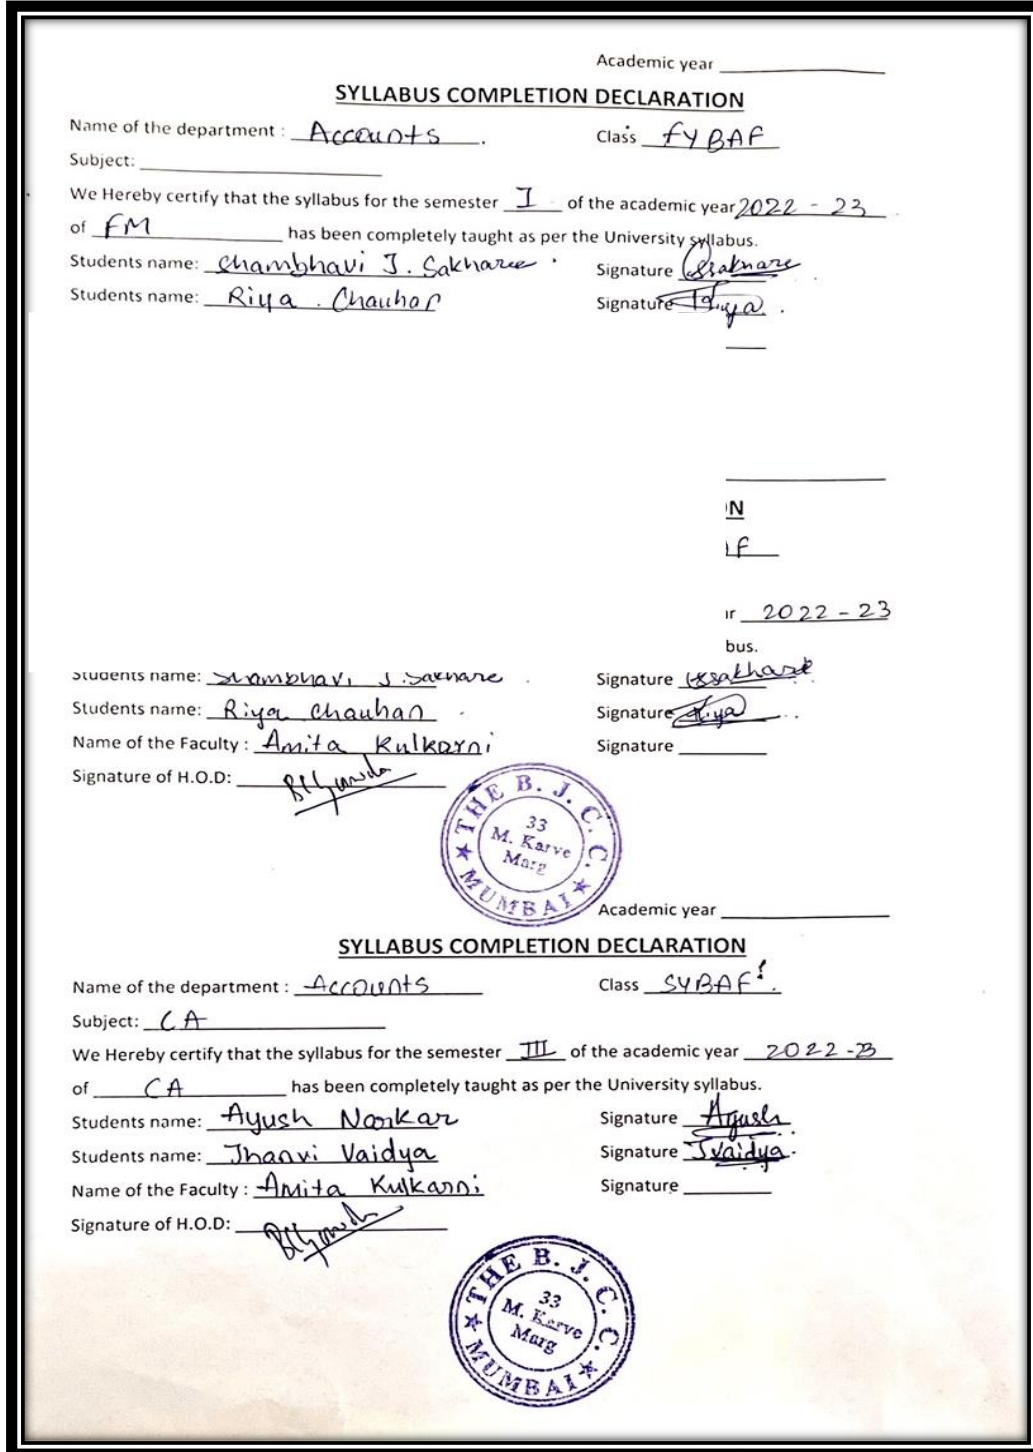 Academic year
SYLLABUS COMPLETION DECLARATION
Name of the department : Accounts . Class FYBAF
Subject:
We Hereby certify that the syllabus for the semester I of the academic year 2022 - 23
of FM has been completely taught as per the University syllabus.
Students name: Shambhavi J. Sakharee Signature SSakhare
Students name: Riya . Chauhan Signature Riya
N
F
ir 2022 - 23
bus.
Students name: Shambhavi J. Sakhare Signature SSakhare
Students name: Riya Chauhan Signature Riya
Name of the Faculty : Amita Kulkarni Signature
Signature of H.O.D:
THE B. J. C. C.
33
M. Karve
Marg
MUMBAI
Academic year
SYLLABUS COMPLETION DECLARATION
Name of the department : Accounts Class SYBAF
Subject: CA
We Hereby certify that the syllabus for the semester III of the academic year 2022-23
of CA has been completely taught as per the University syllabus.
Students name: Ayush Naikar Signature Ayush
Students name: Jhanvi Vaidya Signature JVaidya
Name of the Faculty : Amita Kulkarni Signature
Signature of H.O.D:
THE B. J. C. C.
33
M. Karve
Marg
MUMBAI